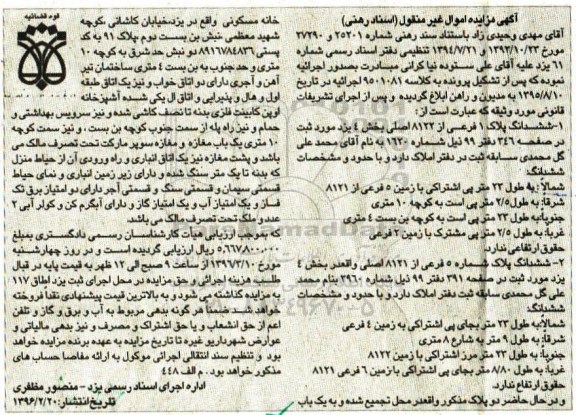 آگهی مزایده اموال غیر منقول (اسناد رهنی)
آقای مهدی وحیدی زاد باستناد سند رهنی شماره ۲۵۲۰۱ و ۲۷۲۹۰
مورخ ۱۳۹۳/۱۰/۲۳ و ۱۳۹۴/۷/۲۱ تنظیمی دفتر اسناد رسمی شماره
۶۱ یزد علیه آقای علی ستوده نیا کرانی مبادرت بصدور اجرائیه
نموده که پس از تشکیل پرونده به کلاسه ۹۵۰۱۰۸۶ اجرائیه در تاریخ
۱۳۹۵/۸/۱۰ به مدیون و راهن ابلاغ گردیده و پس از اجرای تشریفات
قانونی مورد وثیقه که عبارت است از :
۱-ششدانگ پلاک ۱ فرعی از ۸۱۲۲ اصلی بخش ۴ یزد مورد ثبت
در صفحه ۳۴۶ دفتر ۹۹ ذیل شماره ۱۶۲۰ به نام آقای محمد علی
گل محمدی سابقه ثبت در دفتر املاک دارد و با حدود و مشخصات
ششدانگ:
شمالاً: به طول ۲۳ متر پی اشتراکی با زمین ۵ فرعی از ۸۱۲۱
شرقاً: به طول ۲/۵ متر پی است به کوچه ۱۰ متری
جنوبا: به طول ۲۳ متر پی است به کوچه بن بست ۴ متری
غرباً: به طول ۲/۵ متر پی مشترک با زمین ۲ فرعی
حقوق ارتفاعی ندارد.
۲- ششدانگ پلاک شماره ۵ فرعی از ۸۱۲۱ اصلی واقعدر بخش ۴
یزد مورد ثبت در صفحه ۳۹۱ دفتر ۹۹ ذیل شماره ۳۹۶۰ بنام محمد
علی گل محمدی سابقه ثبت دفتر املاک دارد و با حدود و مشخصات
ششدانگ:
شمالاً: به طول ۲۳ متر بجای پی اشتراکی به زمین ۴ فرعی
شرقاً: به طول ۹ متر به شارع ۸ متری
جنوباً: به طول ۲۳ متر مرز اشتراکی با زمین ۸۱۲۲
غرباً: به طول ۸/۸۰ متر بجای پی اشتراکی با زمین ۶ فرعی ۸۱۲۱
حقوق ارتفاع ندارد.
و در حال حاضر دو پلاک مذکور واقعدر محل تجمیع شده و به یک باب
خانه مسکونی واقع در یزدخیابان کاشانی ،کوچه
شهید معظمی نبش بن بست دوم پلاک ۹۱ به کد
پستی ۸۹۱۶۷۸۴۸۳۶ دو نبش حد شرق به کوچه ۱۰
متری و حد جنوب به بن بست ۴ متری ساختمان تیر
آهن و آجری دارای دو اتاق خواب و نیز یک اتاق طبقه
اول و هال و پذیرایی و اتاق ال یکی شده آشپزخانه
اوپن کابینت فلزی بدنه تا نصف کاشی شده و نیز سرویس بهداشتی و
حمام و نیز راه پله از سمت جنوب کوچه بن بست ، و نیز سمت کوچه
۱۰ متری یک باب مغازه و مغازه سوپر مارکت تحت تصرف مالک می
باشد و پشت مغازه نیز یک اتاق انباری و راه ورودی آن از حیاط منزل
که بدنه تا یک متر سنگ شده و دارای زیر زمین انباری و نمای حیاط
قسمتی سیمان و قسمتی سنگ و قسمتی آجر دارای دو امتیاز برق تک
فاز و یک امتیاز آب و یک امتیاز گاز و دارای آبگرم کن و کولر آبی ۲
عدد و ملک تحت تصرف مالک می باشد.
که بموجب ارزیابی هیأت کارشناسان رسمی دادگستری بمبلغ
۵،۶۶۷،۸۰۰،۰۰۰ ریال ارزیابی گردیده است و در روز چهارشنبه
مورخ ۱۳۹۶/۳/۱۰ از ساعت ۹ صبح الی ۱۲ ظهر به قیمت پایه در قبال
طلب و هزینه اجرائی و حق مزایده در محل اجرای ثبت یزد اطاق ۱۱۷
به مزایده گذاشته می شود و به بالاترین قیمت پیشنهادی نقداً فروخته
خواهد شد ضمناً هر گونه بدهی مربوط به آب و برق و گاز و تلفن
اعم از حق انشعاب و یا حق اشتراک و مصرف و نیز بدهی مالیاتی و
عوارض شهرداری و غیره تا تاریخ مزایده به عهده برنده مزایده خواهد
بود و تنظیم سند انتقالی اجرائی موکول به ارائه مفاصا حساب های
مذکور خواهد بود . م الف ۴۴۸
اداره اجرای اسناد رسمی یزد - منصور مظفری
تاریخ انتشار: ۱۳۹۶/۲/۲۰
قوه قضائیه